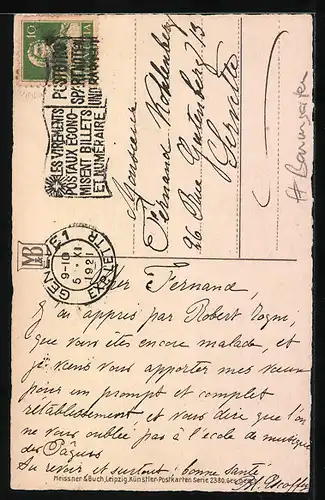 10
LES VIREMENTS
POSTAUX ECONO-
MISENT BILLETS
ET NUMERAIRE
GENEVE 1
9-10
5. XI
1921
EXP. LETTR.
Monsieur
Fernand Kohlenberg
26 Rue Gutenberg
Genève
M&B
Cher Fernand,
J'ai appris par Robert
que vous êtes encore malade, et
je viens vous apporter mes vœux
pour un prompt et complet
rétablissement et vous dire que l'on
ne vous oublie pas à l'école de musique
des Pâquis
Au revoir et surtout: bonne santé
Meissner & Buch, Leipzig, Künstler-Postkarten Serie 2380